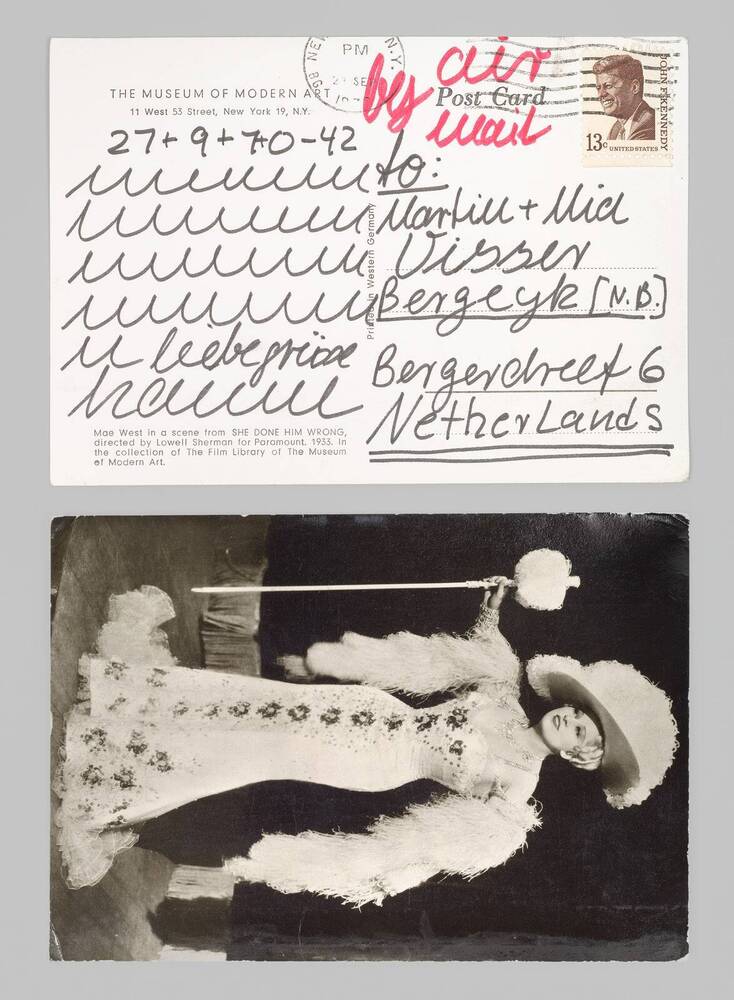 THE MUSEUM OF MODERN ART
11 West 53 Street, New York 19, N.Y.
27+9+70-42
u liebegrüsse
hanne
Mae West in a scene from SHE DONE HIM WRONG,
directed by Lowell Sherman for Paramount. 1933. In
the collection of The Film Library of The Museum
of Modern Art.
Printed in Western Germany
N.Y.
PM
SEP
by air mail
Post Card
JOHN F. KENNEDY
13c UNITED STATES
to:
Martin + Mia
Visser
Bergeyk [N.B.]
Bergerdreef 6
NetherLands